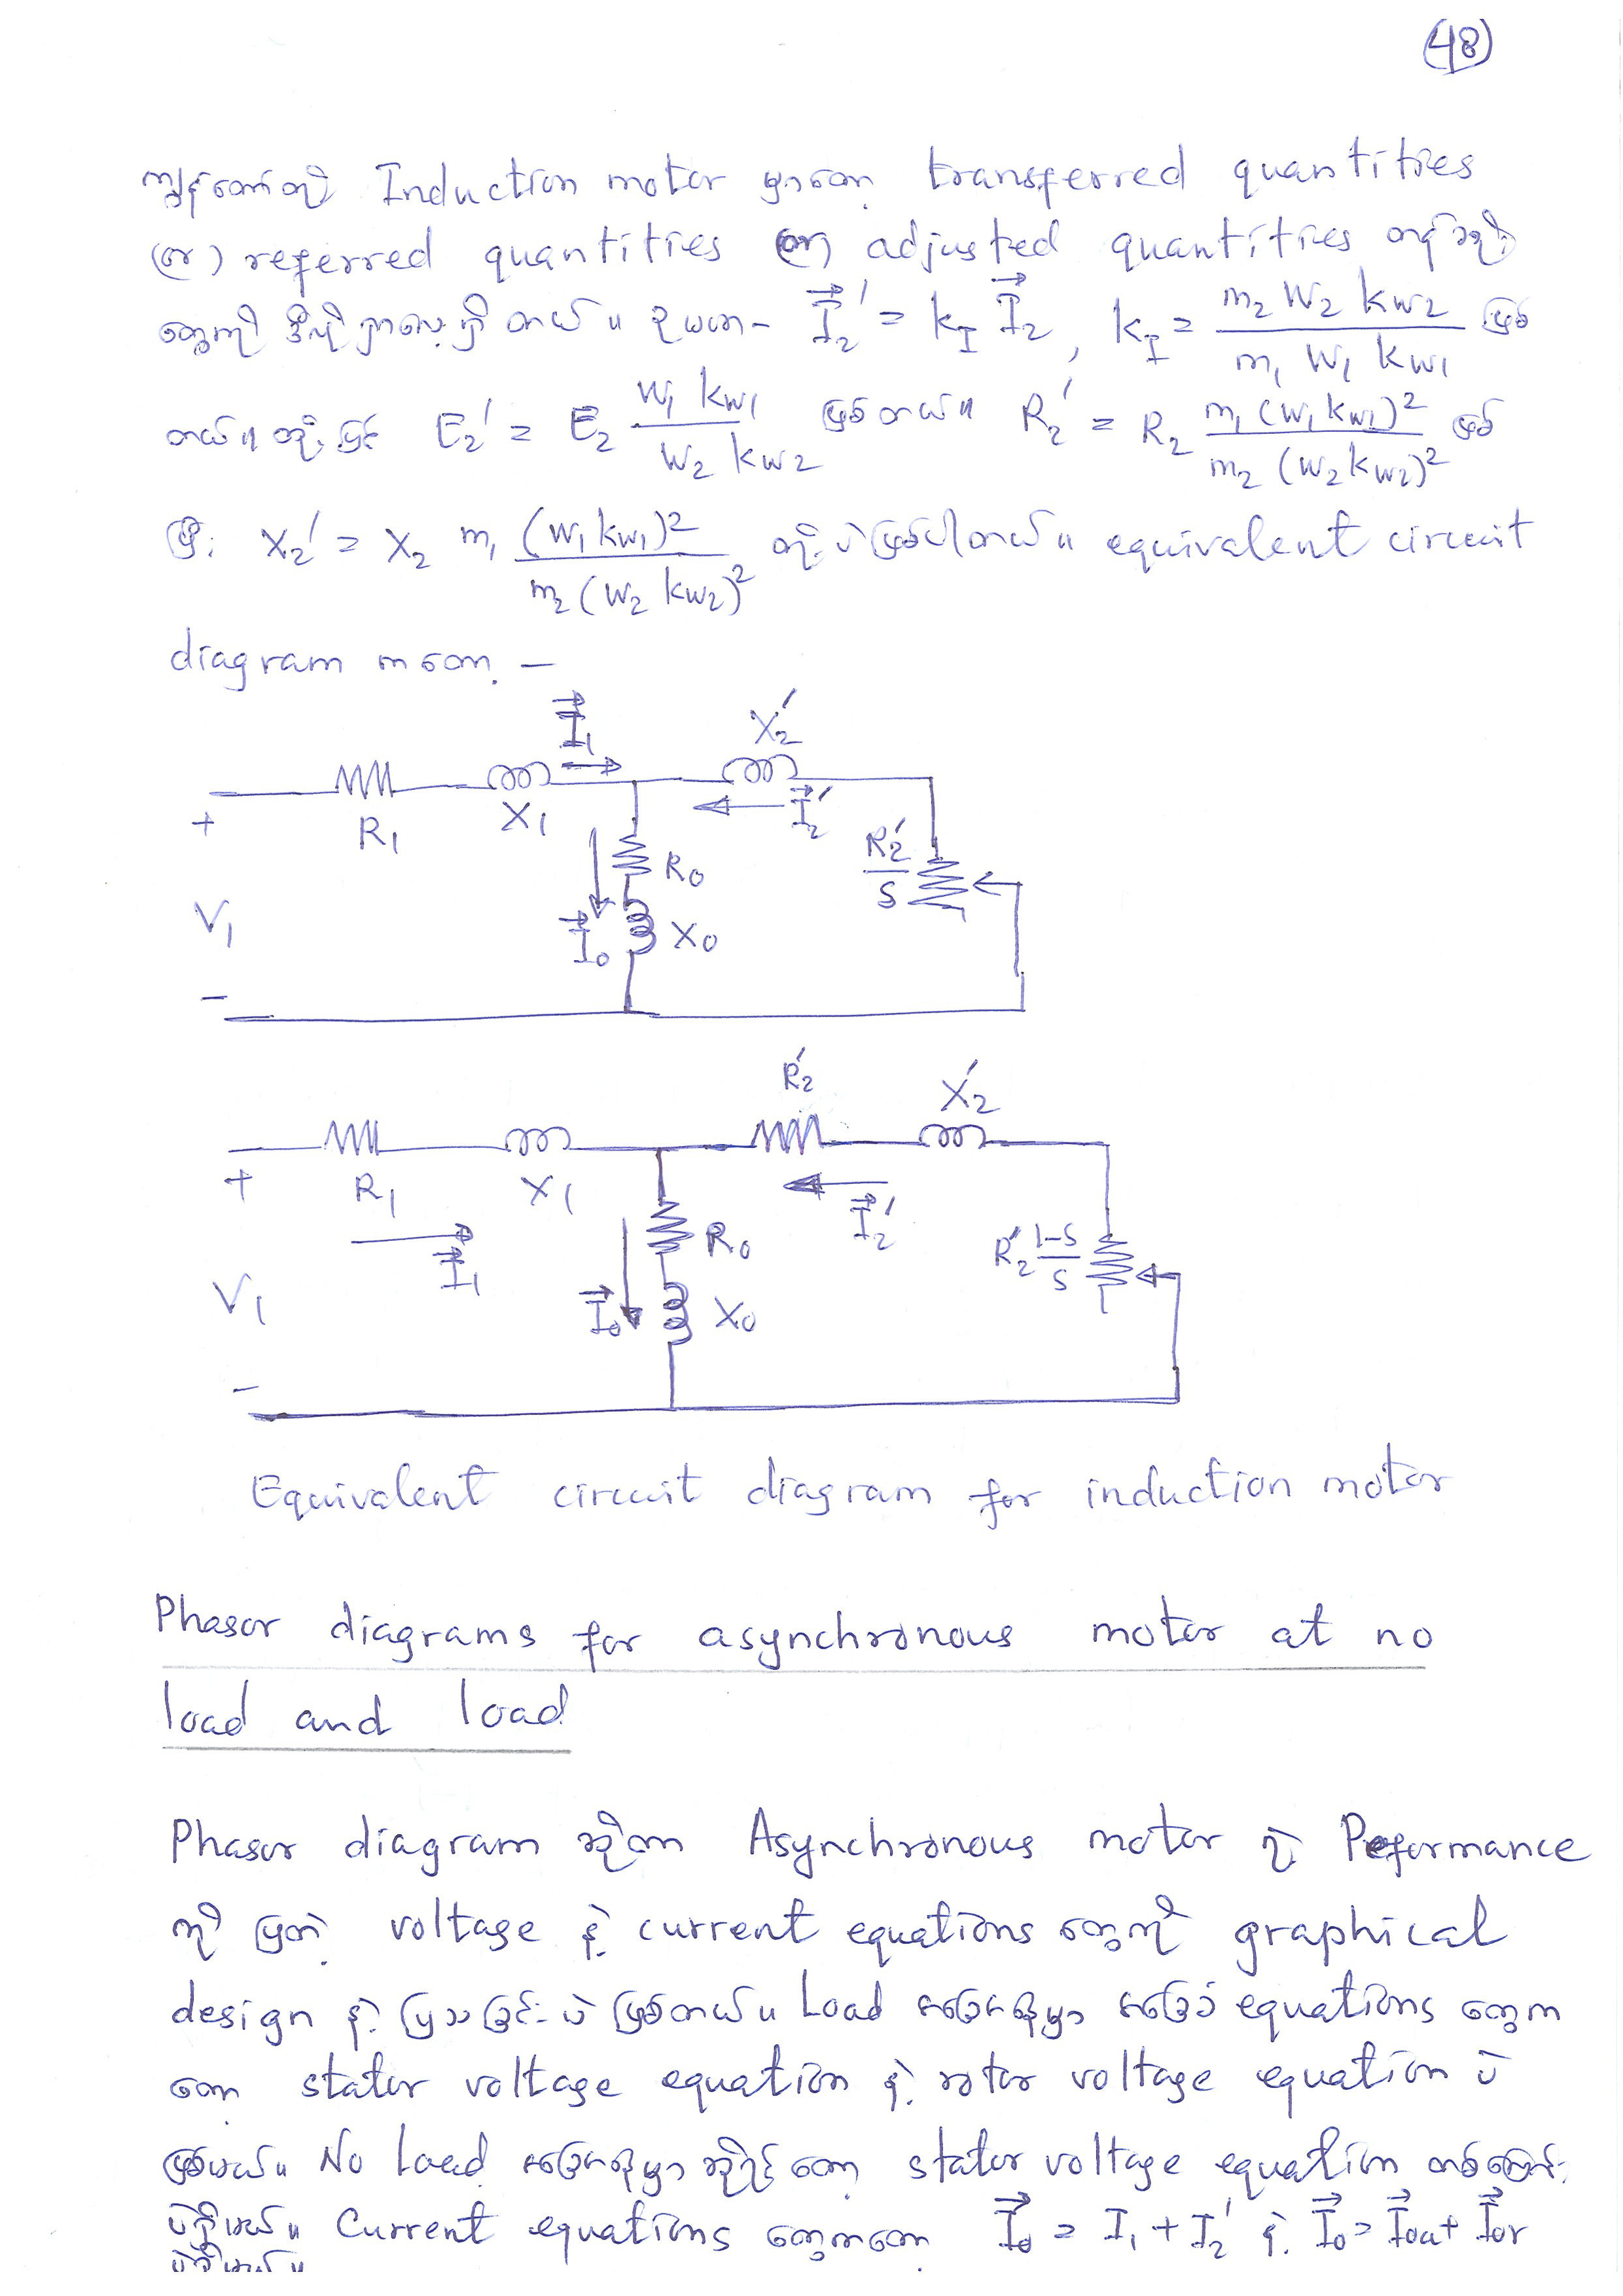 (48)
ကျွန်တော်တို့ Induction motor မှာတော့ transferred quantities
(or) referred quantities (or) adjusted quantities တန်ဖိုး
တွေကို ဒီလိုရှာလေ့ရှိ တယ်။ ဥပမာ- I₂' = k_I I₂, k_I = m₂ W₂ kw₂ / m₁ W₁ kw₁ ဖြစ်
တယ်။ တို့ပြင် E₂' = E₂ W₁ kw₁ / W₂ kw₂ ဖြစ်တယ်။ R₂' = R₂ m₁ (W₁ kw₁)² / m₂ (W₂ kw₂)² ဖြစ်
ပြီး X₂' = X₂ m₁ (W₁ kw₁)² / m₂ (W₂ kw₂)² တို့ပဲဖြစ်ပါတယ်။ equivalent circuit
diagram ကတော့ -
I₁
X₂'
+ R₁ X₁ I₂'
R₂'/S
R₀
V₁ I₀ X₀
-
R₂' X₂'
+ R₁ X₁ I₂'
I₁ R₀ R₂' 1-S/S
V₁ I₀ X₀
-
Equivalent circuit diagram for induction motor
Phasor diagrams for asynchronous motor at no
load and load
Phasor diagram ဆိုတာ Asynchronous motor ရဲ့ Peformance
ကို ပြတဲ့ voltage နဲ့ current equations တွေကို graphical
design နဲ့ ပြသခြင်းပဲ ဖြစ်တယ်။ Load အခြေအနေမှာ အခြေခံ equations တွေက
တော့ stator voltage equation နဲ့ rotor voltage equation ပဲ
ဖြစ်မယ်။ No Load အခြေအနေမှာ ဆိုရင်တော့ stator voltage equation တစ်ကြောင်း
ပဲရှိမယ်။ Current equations တွေကတော့ I₀ = I₁ + I₂' နဲ့ I₀ = I₀a + I₀r
ပဲရှိမယ်။